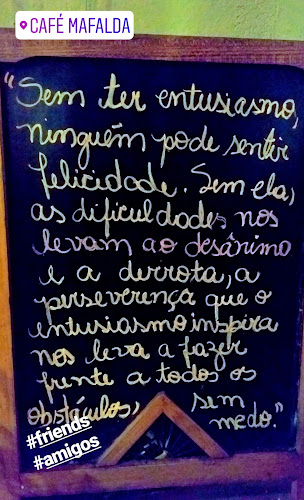 CAFÉ MAFALDA
"Sem ter entusiasmo,
ninguém pode sentir
felicidade. Sem ela,
as dificuldades nos
levam ao desânimo
e a derrota, a
perseverença que o
entusiasmo inspira
nos leva a fazer
frente a todos os
obstáculos, sem
medo."
#friends
#amigos